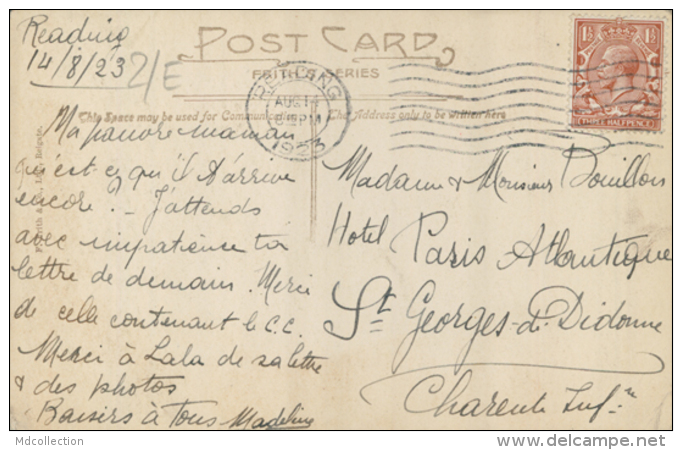 Reading
14/8/23
POST CARD
FRITH'S SERIES
READING
AUG 14
PM
1923
1½ 1½
THREE HALFPENCE
This Space may be used for Communication
The Address only to be written here
Ma pauvre maman
qu'est-ce qu'il t'arrive
encore ? - J'attends
avec impatience ta
lettre de demain. Merci
de celle contenant le C.C.
Merci à Lala de sa lettre
& des photos
Baisers à Tous Madeline
Madame & Monsieur Bouillon
Hotel Paris Atlantique
St Georges-de-Didonne
Charente Infre
Reigate.
Mdcollection
www.delcampe.net